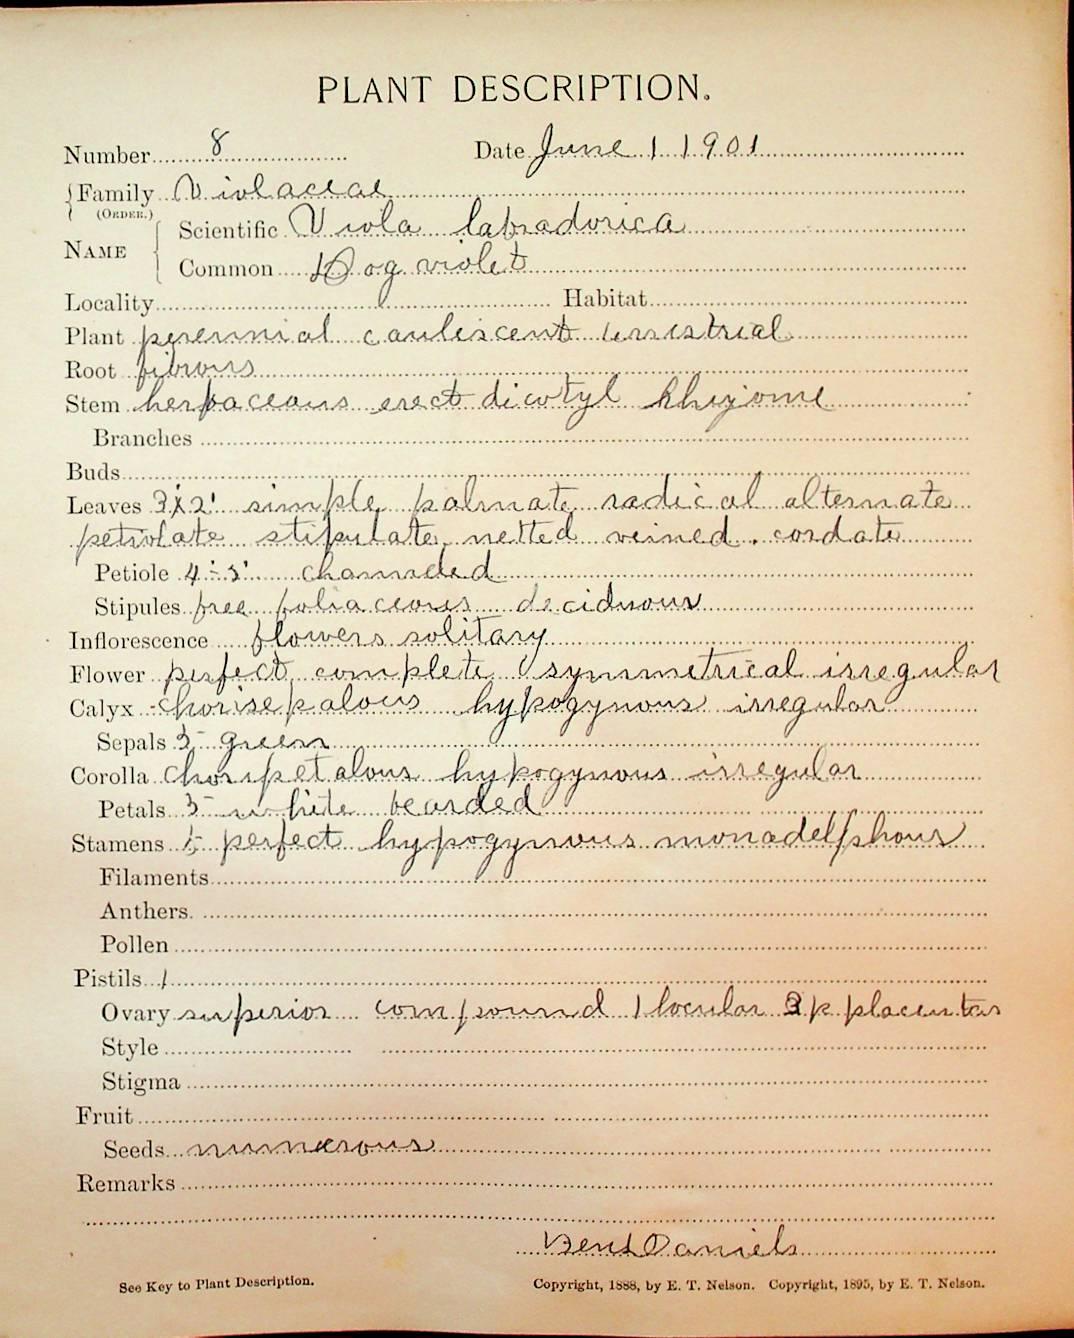 PLANT DESCRIPTION.
Number 8 Date June 1 1901
Family Violaceae
(ORDER.)
NAME
Scientific Viola labradorica
Common Dog violet
Locality Habitat
Plant perennial caulescent terrestrial
Root fibrous
Stem herbaceous erect dicotyl Rhizome
Branches
Buds
Leaves simple palmate radical alternate
petiolate stipulate netted veined. cordate
Petiole channeled
Stipules free foliaceous deciduous
Inflorescence flowers solitary
Flower perfect complete symmetrical irregular
Calyx chorisepalous hypogynous irregular
Sepals 5 green
Corolla choripetalous hypogynous irregular
Petals 5 white bearded
Stamens 5 perfect hypogynous monadelphous
Filaments
Anthers.
Pollen
Pistils 1
Ovary superior compound 1 locular placentas
Style
Stigma
Fruit
Seeds numerous
Remarks
Daniels
See Key to Plant Description. Copyright, 1888, by E. T. Nelson. Copyright, 1895, by E. T. Nelson.